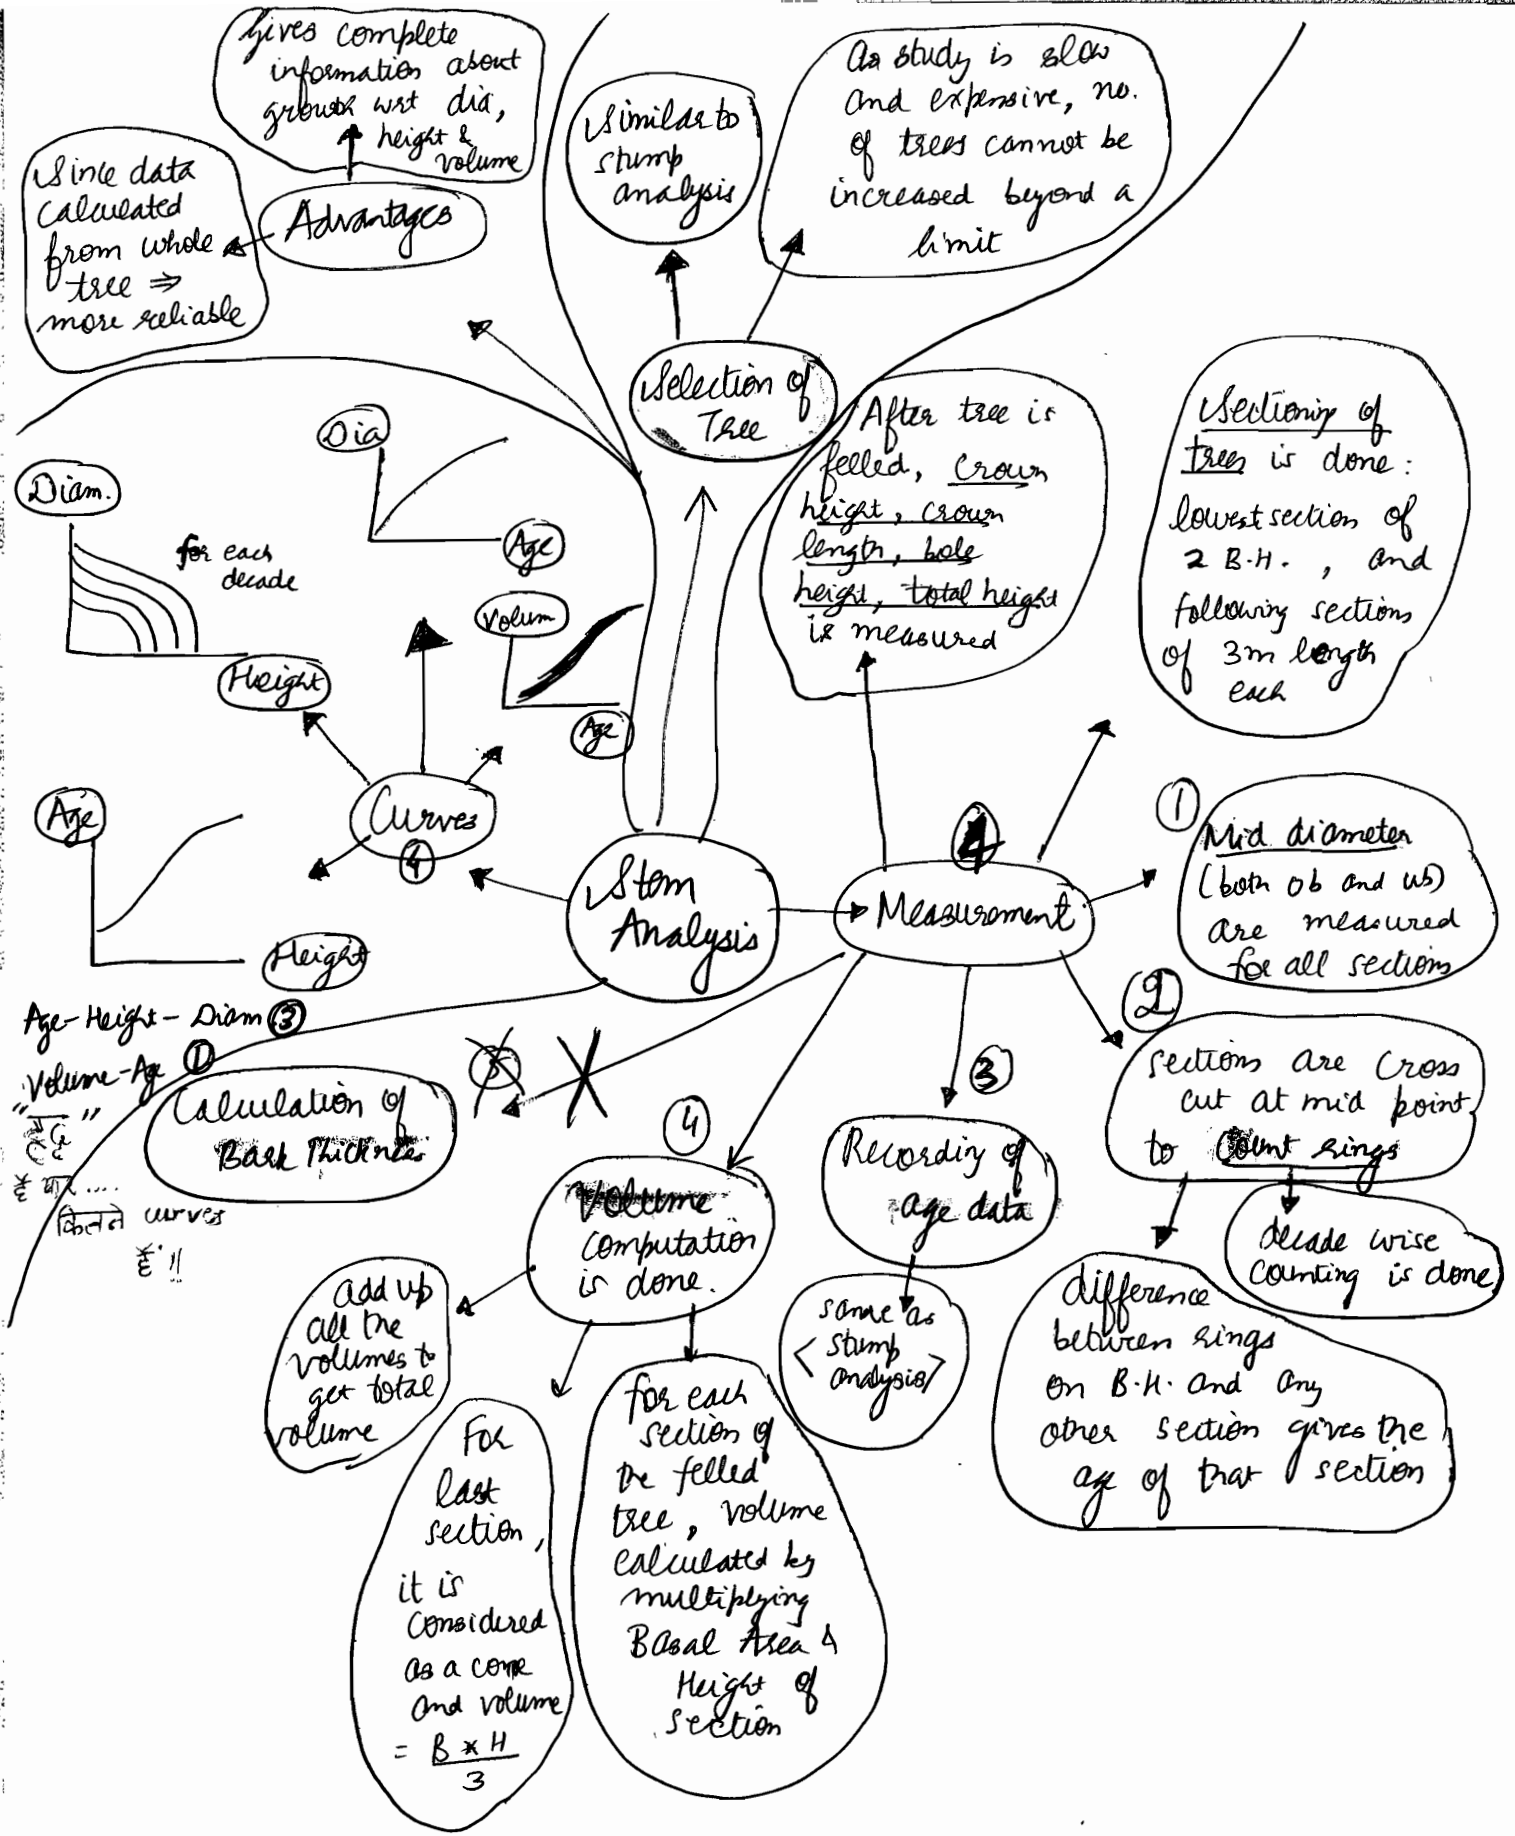 Gives complete
information about
growth wrt dia,
height &
volume
Since data
calculated
from whole
tree ⇒
more reliable
Advantages
Similar to
stump
analysis
As study is slow
and expensive, no.
of trees cannot be
increased beyond a
limit
Selection of
Tree
After tree is
felled, crown
height, crown
length, bole
height, total height
is measured
Sectioning of
trees is done:
lowest section of
2 B.H., and
following sections
of 3m length
each
Dia
Age
Diam.
for each
decade
Height
Volum
Age
Curves
4
Age
Height
Stem
Analysis
4
Measurement
1
Mid diameter
(both ob and ub)
are measured
for all sections
2
sections are cross
cut at mid point
to count rings
decade wise
counting is done
difference
between rings
on B.H. and any
other section gives the
age of that section
3
Recording of
age data
same as
<stump
analysis>
4
Volume
computation
is done.
add up
all the
volumes to
get total
volume
For
last
section,
it is
considered
as a cone
and volume
= B * H
3
for each
section of
the felled
tree, volume
calculated by
multiplying
Basal Area &
Height of
section
5
Calculation of
Bark Thickness
Age-Height-Diam 3
Volume-Age 1
कितने curves
हैं !!